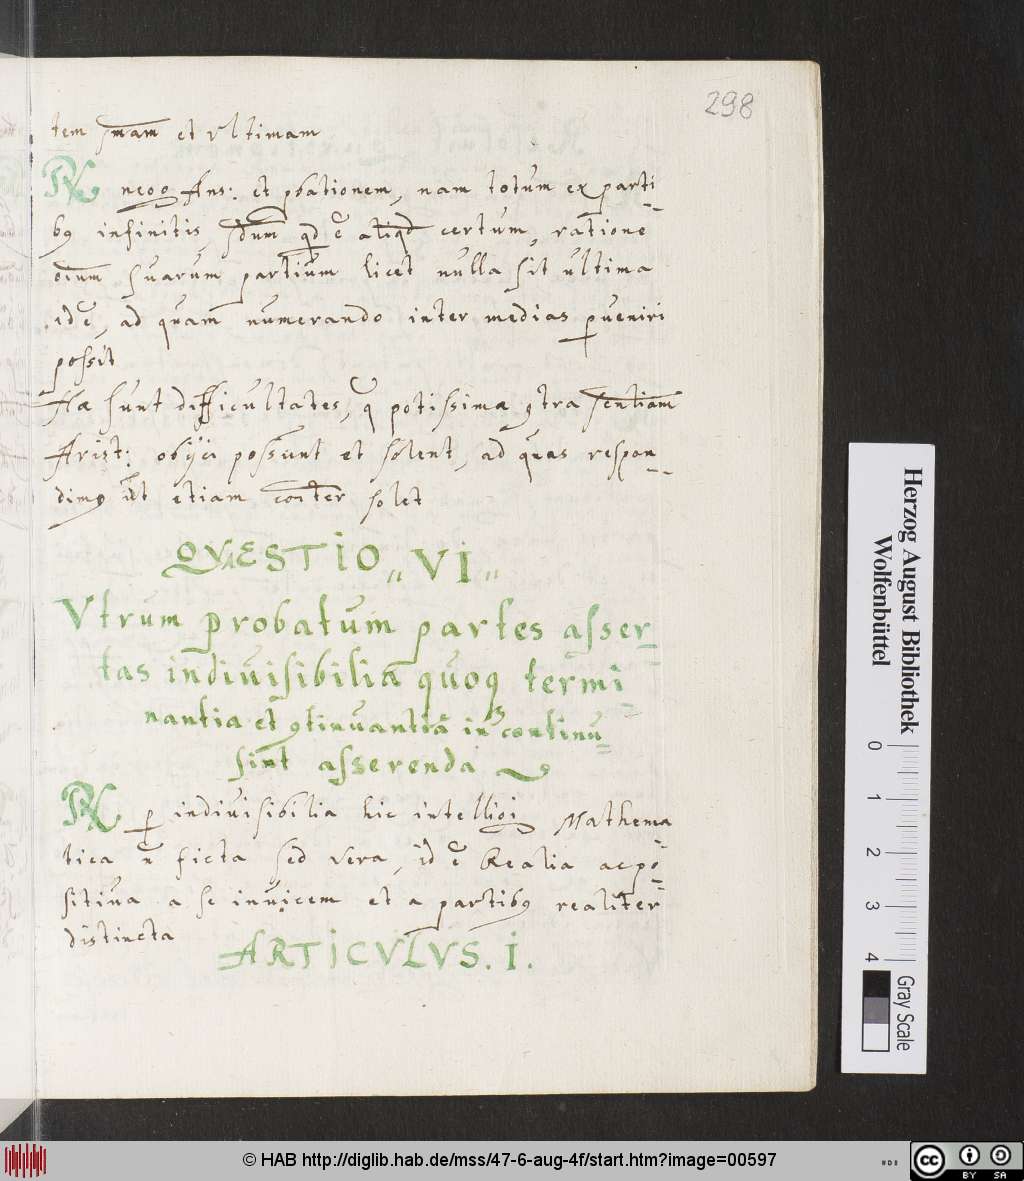 298
tem smam et vltimam
Rx nego Ans: et pbationem, nam totum ex parti
b9 infinitis, sdum qd ē aliqd certum, ratione
oium suarum partium licet nulla sit ultima
id ē, ad quam numerando inter medias pueniri
possit
Hæ sunt difficultates, q potissimæ 9tra sentiam
Arist: obijci possunt et solent, ad quas respon-
dim9 ut etiam coiter solet
QVÆSTIO „ VI „
Vtrum probatum partes asser-
tas indiuisibilia quoq termi-
nantia et 9tinuantia in continu-
sint asserenda
Rx p indiuisibilia hic intelligi Mathema-
tica n ficta sed vera, id ē Realia ac po-
sitiua a se inuicem et a partib9 realiter
distincta
ARTICVLVS. I.
Herzog August Bibliothek
Wolfenbüttel
0 1 2 3 4
Gray Scale
© HAB http://diglib.hab.de/mss/47-6-aug-4f/start.htm?image=00597
cc BY SA